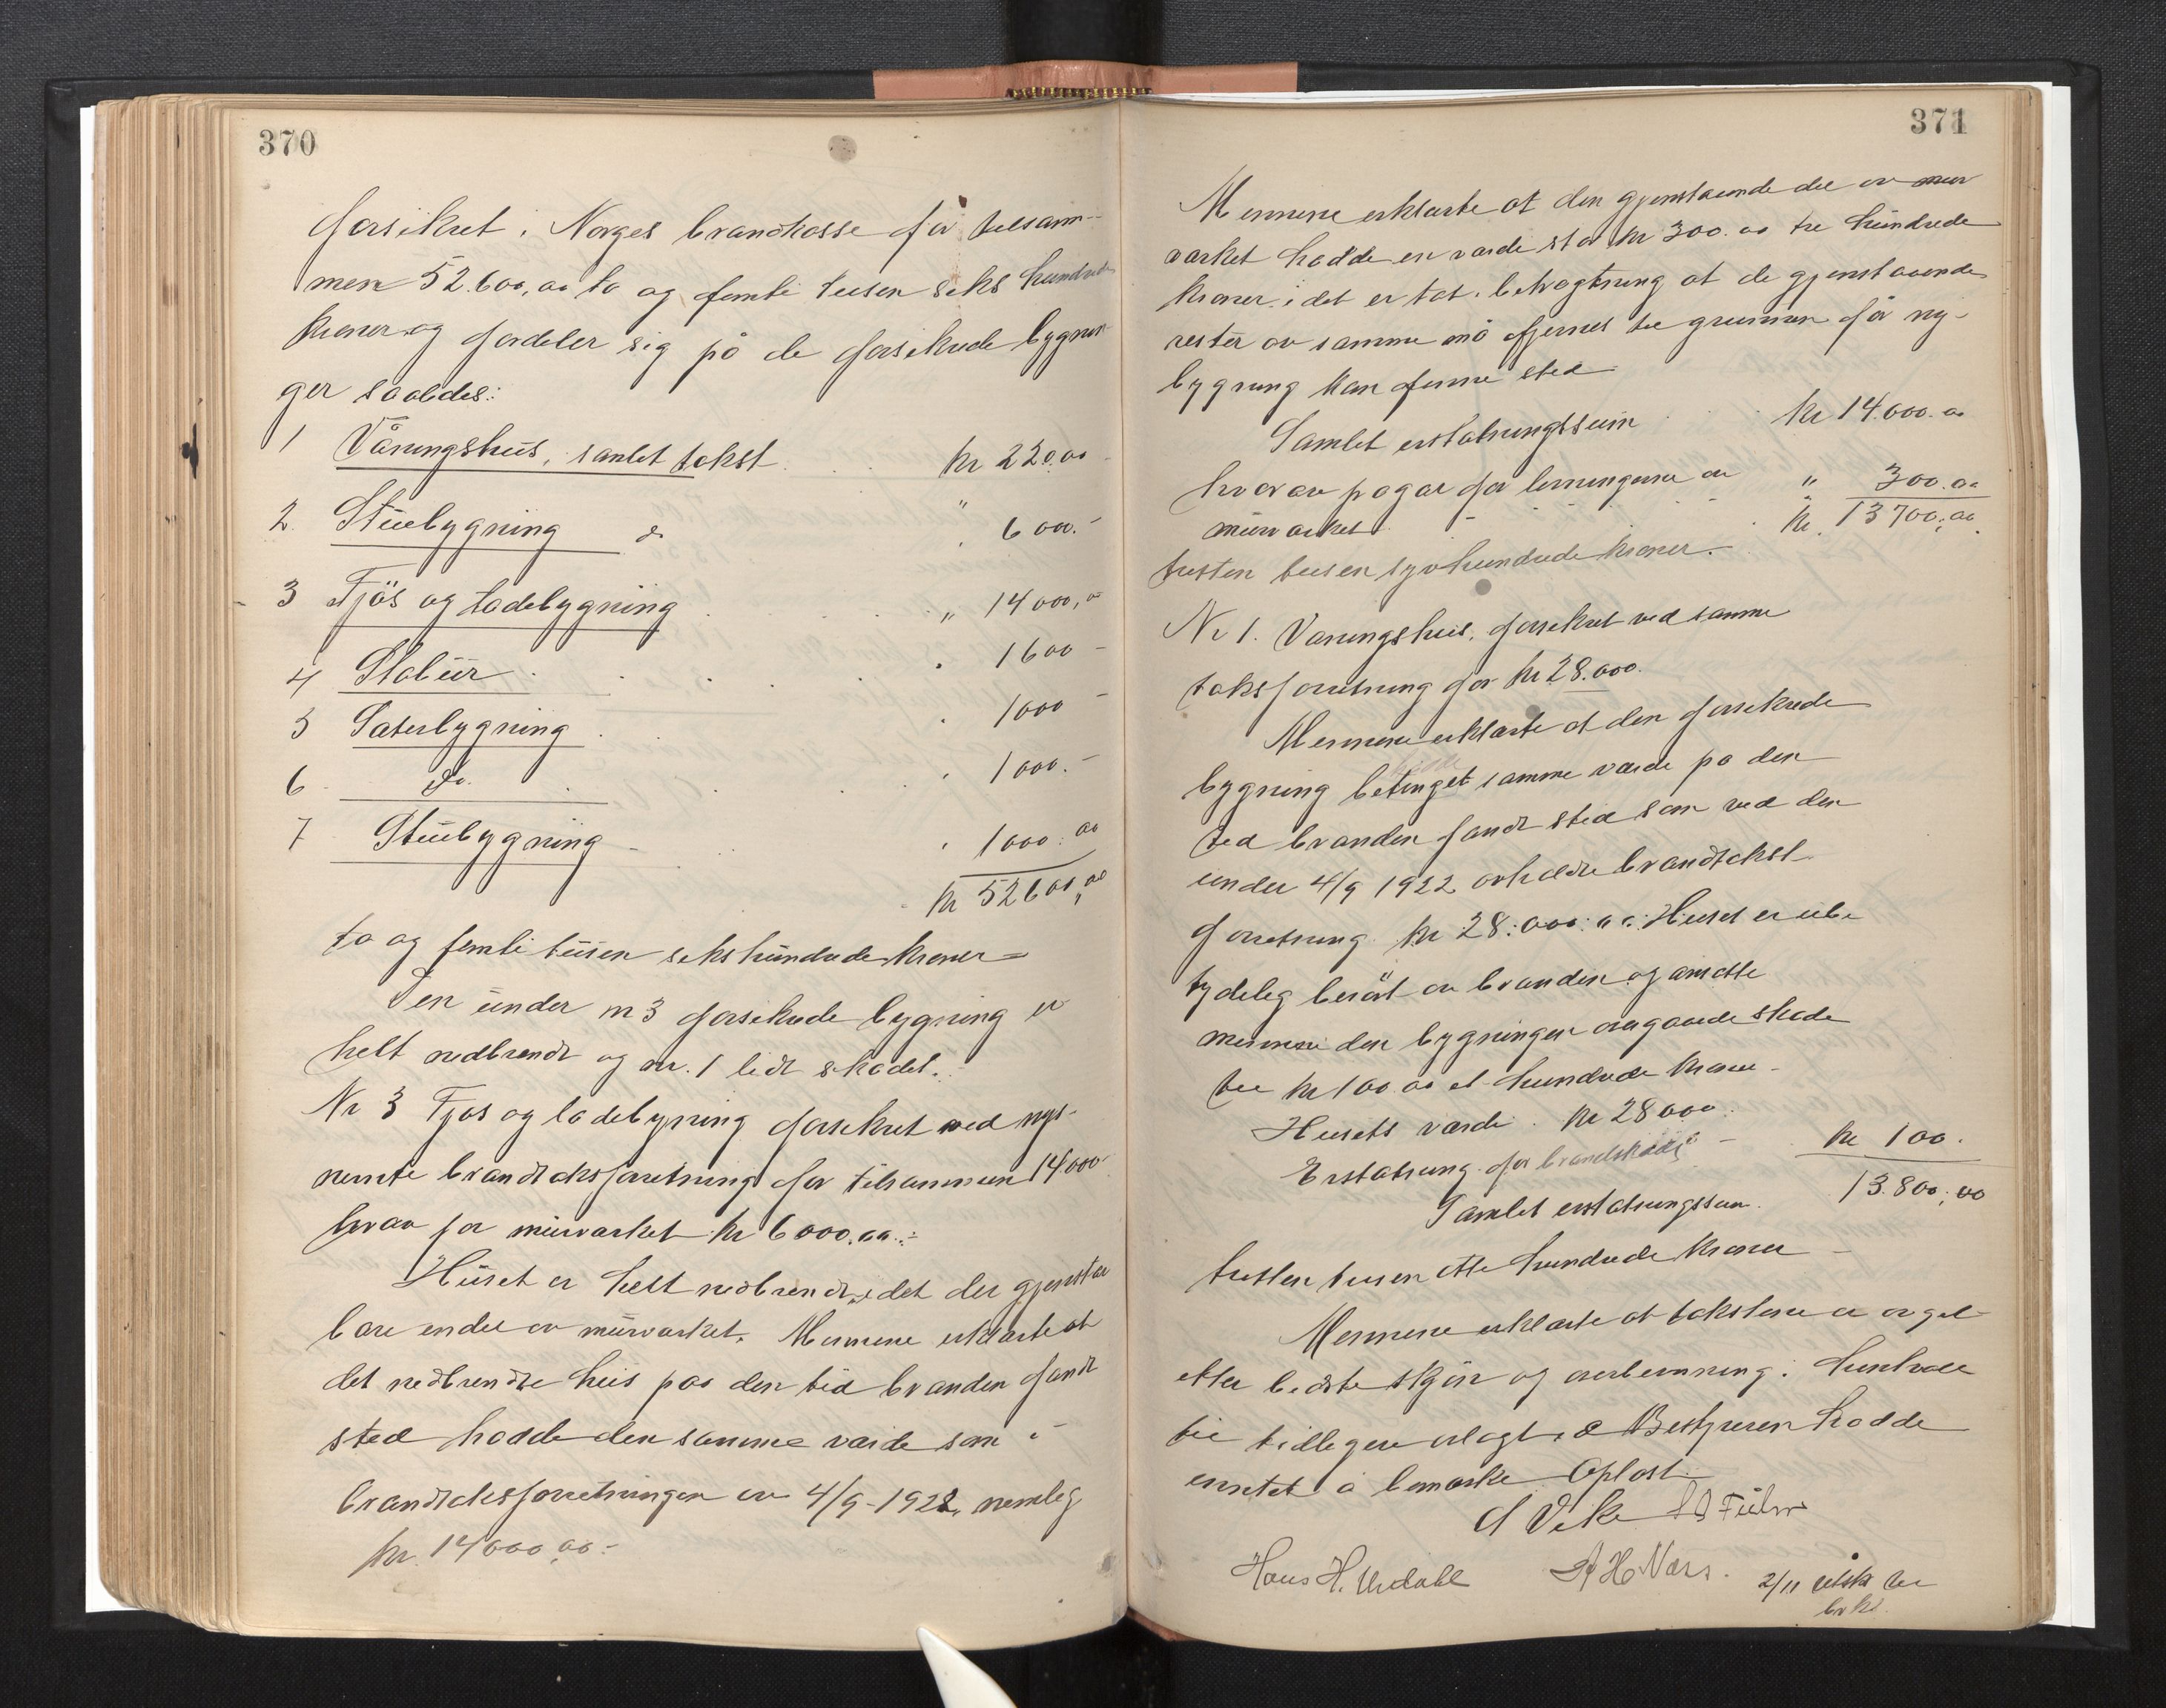 370
forsikret i Norges brandkasse for tilsam-
men 52.600,00 to og femti tusen seks hundrede
kroner og fordeler sig på de forsikrede bygnin
ger saaledes:
1 Våningshus, samlet takst kr 22000
2. Stuebygning do " 6000.-
3 Fjös og ladebygning " 14000,00
4 Stabur . . . . 1600 -
5 Sæterbygning . . . 1000 -
6 do. . . . 1000.-
7 Stuebygning - . . 1000.00
kr 52600,00
to og femti tusen sekshundrede kroner =
Den under nr 3 forsikrede bygning er
helt nedbrendt og nr. 1 lidt skadet.
Nr 3 Fjøs og ladebygning forsikret ved nys-
nemte brandtaksforretning for tilsammen 14.000
hvav for murværket kr 6000.00.-
Huset er helt nedbrendt, idet der gjenstår
bare en del av murværket. Mennene erklærte at
det nedbrendte hus paa den tid branden fandt
sted hadde den samme værde som i
brandtaksforretningen av 4/9-1922, nemleg
kr. 14000.00.-
371
Mennene erklærte at den gjenstaaende del av mur
værket hadde en værde stor kr 300.00 tre hundrede
kroner, idet er tat i betragtning at de gjenstaaende
rester av samme må fjernes før grunnen för ny-
bygning kan finne sted
Samlet erstatningssum . . kr 14.000.00
hvorav fragår for levningerne av " 300.00
murværket . - - - - kr. 13700,00
tretten tusen syvhundrede kroner.-
Nr 1. Våningshus, forsikret ved samme
taksforretning for kr 28.000.
Mennene erklærte at den forsikrede
bygning betinget samme værde på den
tid branden fandt sted som ved den
under 4/9 1922 avholdte brandtakst
forretning kr 28.000.00. Huset er ube
tydeleg berört av branden og ansatte
mennene den bygningen overgaaede skade
til kr 100.00 et hundrede kroner -
Husets værde . kr 28000.
Erstatning for brandskade - kr 100.
Samlet erstatningssum. 13.800,00
tretten tusen otte hundrede kroner -
Mennene erklærte at takstene er avgit
etter bedste skjön og overbevisning.
tidligere avlagt. Bestyreren hadde
inntet å bemærke Oplæst.
Hans H. Urdahl
2/11 utskr til
br.k.